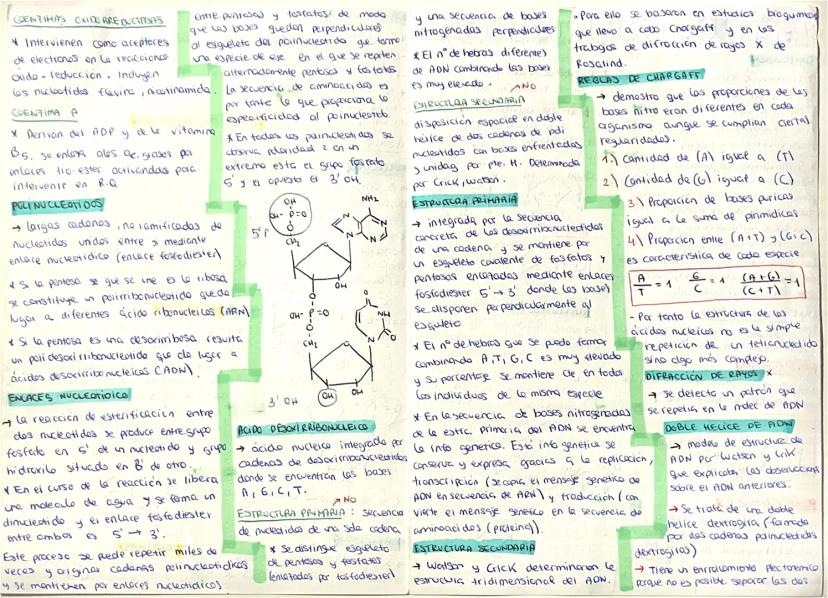 COENZIMAS OXIDOREDUCTASAS
* Intervienen como aceptores
de electrones en la reacciones
óxido-reducción. Incluyen
los nucleótidos flavina, nicotinamida.
COENZIMA A
* Derivan del ADP y de la vitamina
B5. Se enlaza a los ac. grasos por
enlaces tio-ester activandolos para
intervenir en R.Q
POLINUCLEOTIDOS
→ largas cadenas, no ramificadas de
nucleótidos unidos entre si mediante
enlace nucleotídico (enlace fosfodiester)
* Si la pentosa se que se une es la ribosa
se constituye un polirribonucleotido que da
lugar a diferentes ácido ribonucleicos (ARN)
* Si la pentosa es una desoxirribosa resulta
un polidesoxirribonucleotido que da lugar a
ácidos desoxirribonucleicos (ADN).
ENLACES NUCLEOTIDICO
→ La reacción de esterificación entre
dos nucleotidos se produce entre grupo
fosfato en 5' de un nucleotido y grupo
hidroxilo situado en 3' de otro.
* En el curso de la reacción se libera
una molecula de agua y se forma un
dinucleotido y el enlace fosfodiester
entre ambos es 5' → 3'.
Este proceso se puede repetir miles de
veces y originar cadenas polinucleotidicas
y se mantienen por enlaces nucleotidicos
entre pentosas y fosfatos de modo
que las bases quedan perpendiculares
al esqueleto del polinucleotido que forma
una especie de eje en el que se repiten
alternadamente pentosas y fosfatos
La secuencia de aminoacidos es
por tanto lo que proporciona la
especificidad al polinucleotido.
* En todos los polinucleotidos se
observa polaridad 2 en un
extremo esta el grupo fosfato
5' y el opuesto el 3' OH.
5' P
OH
OH-P=O
O
CH2
NH2
N
N
N
N
O
OH
O
OH-P=O
O
CH2
O
NH
N
O
O
OH
OH
3' OH
ACIDO DESOXIRRIBONUCLEICO
→ ácido nucleico integrado por
cadenas de desoxirribonucleotidos
donde se encuentran las bases
A, G, C, T.
→ NO
ESTRUCTURA PRIMARIA: secuencia
de nucleotidos de una sola cadena.
* Se distingue esqueleto
de pentosas y fosfatos
(enlazados por fosfodiester)
y una secuencia de bases
nitrogenadas perpendiculares
* El nº de hebras diferentes
de ADN combinando las bases
es muy elevado.
→ NO
ESTRUCTURA SECUNDARIA
disposición espacial en doble
hélice de dos cadenas de poli
nucleotidos con bases enfrentadas
y unidas por pte. H. Determinada
por Crick, Watson.
ESTRUCTURA PRIMARIA
→ integrada por la secuencia
concreta de los desoxirribonucleotidos
de una cadena y se mantiene por
un esqueleto covalente de fosfatos y
pentosas enlazados mediante enlaces
fosfodiester 5' → 3' donde las bases
se disponen perpendicularmente al
esqueleto
* El nº de hebras que se puede formar
combinando A, T, G, C es muy elevado
y su porcentaje se mantiene cte en todos
los individuos de la misma especie
* En la secuencia de bases nitrogenadas
de la estra. primaria del ADN se encuentra
la info genética. Está info genética se
conserva y expresa gracias a la replicación,
transcripción (se copia el mensaje genetico de
ADN en secuencia de ARN) y traducción (con
vierte el mensaje genetico en la secuencia de
aminoacidos (proteina)).
ESTRUCTURA SECUNDARIA
→ Watson y Crick determinaron la
estructura tridimensional del ADN.
- Para ello se basaron en estudios bioquimicos
que llevo a cabo Chargaff y en los
trabajos de difracción de rayos X de
Rosalind.
REGLAS DE CHARGAFF
→ demostro que las proporciones de las
bases nitro eran diferentes en cada
organismo aunque se cumplian ciertas
regularidades.
1.) Cantidad de (A) igual a (T)
2.) Cantidad de (G) igual a (C)
3.) Proporción de bases puricas
igual a la suma de pirimidicas
4.) Proporción entre (A+T) y (G+C)
es caracteristica de cada especie
A/T = 1 G/C = 1 (A+G)/(C+T) = 1
- Por tanto la estructura de los
ácidos nucleicos no es la simple
repetición de un tetranucleotido
sino algo más complejo.
DIFRACCIÓN DE RAYOS X
→ se detecto un patrón que
se repetía en la molec de ADN
DOBLE HELICE DE ADN
→ modelo de estructura de
ADN por Watson y Crik
que explicaba las observaciones
sobre el ADN anteriores.
→ Se trata de una doble
helice dextrogira (formada
por dos cadenas polinucleotidas
dextrogiras)
→ Tiene un enrollamiento plectonemico
porque no es posible separar las dos